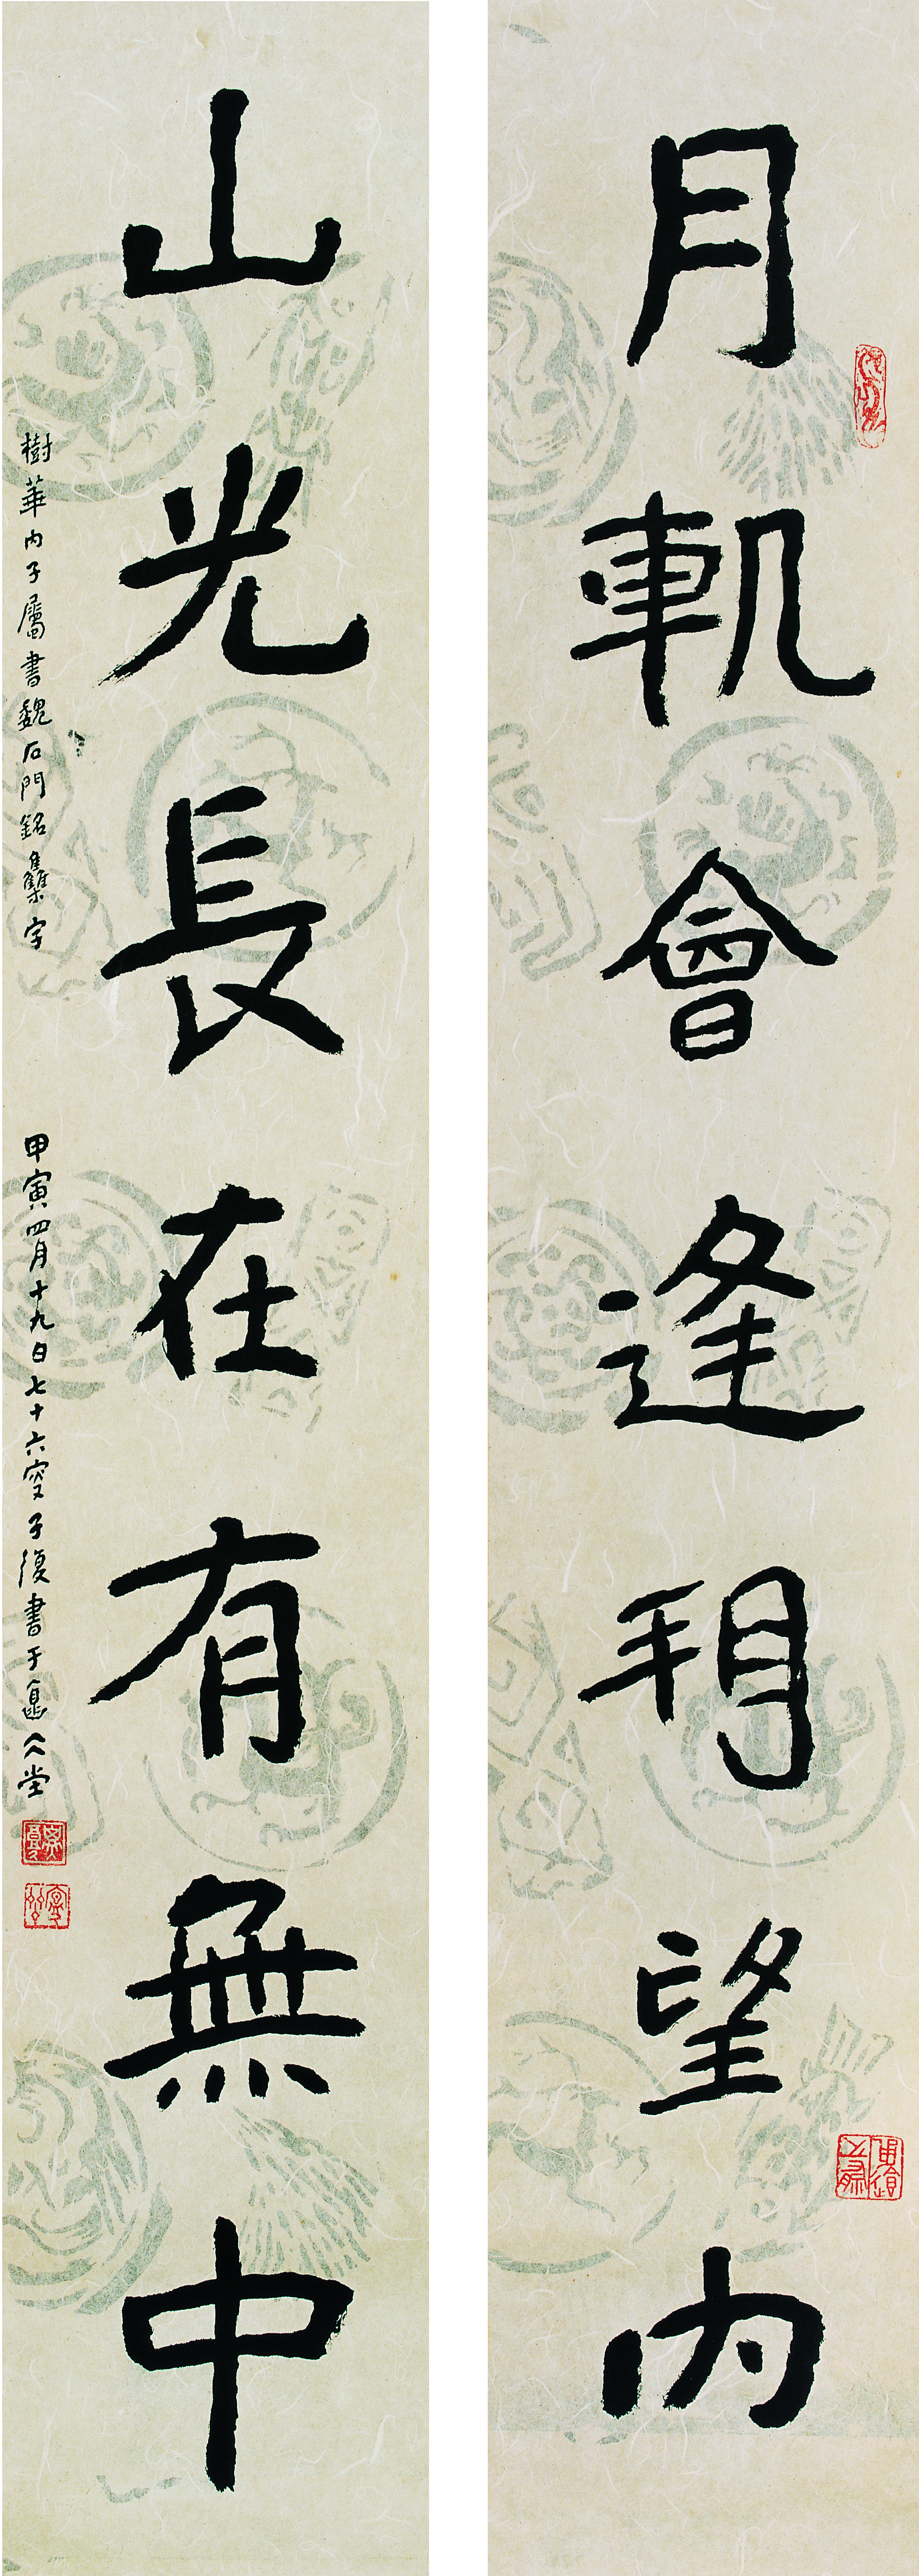 月軌會逢朔望內
山光長在有無中
樹華內子屬書魏石門銘雧字
甲寅四月十九日七十六叟子復書于堂